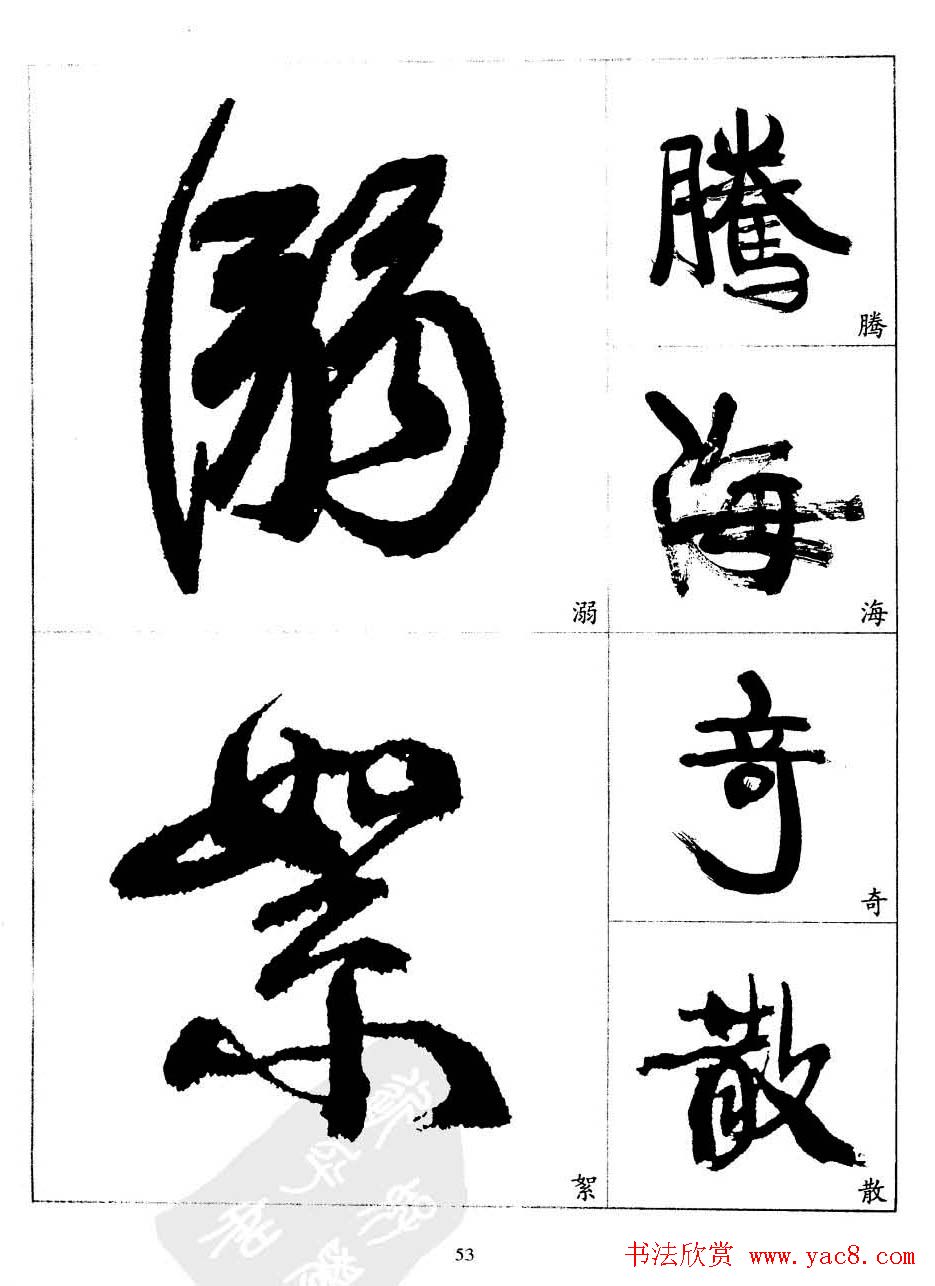 腾
腾
海
海
奇
奇
散
散
溺
溺
絮
絮
53
书法欣赏 www.yac8.com